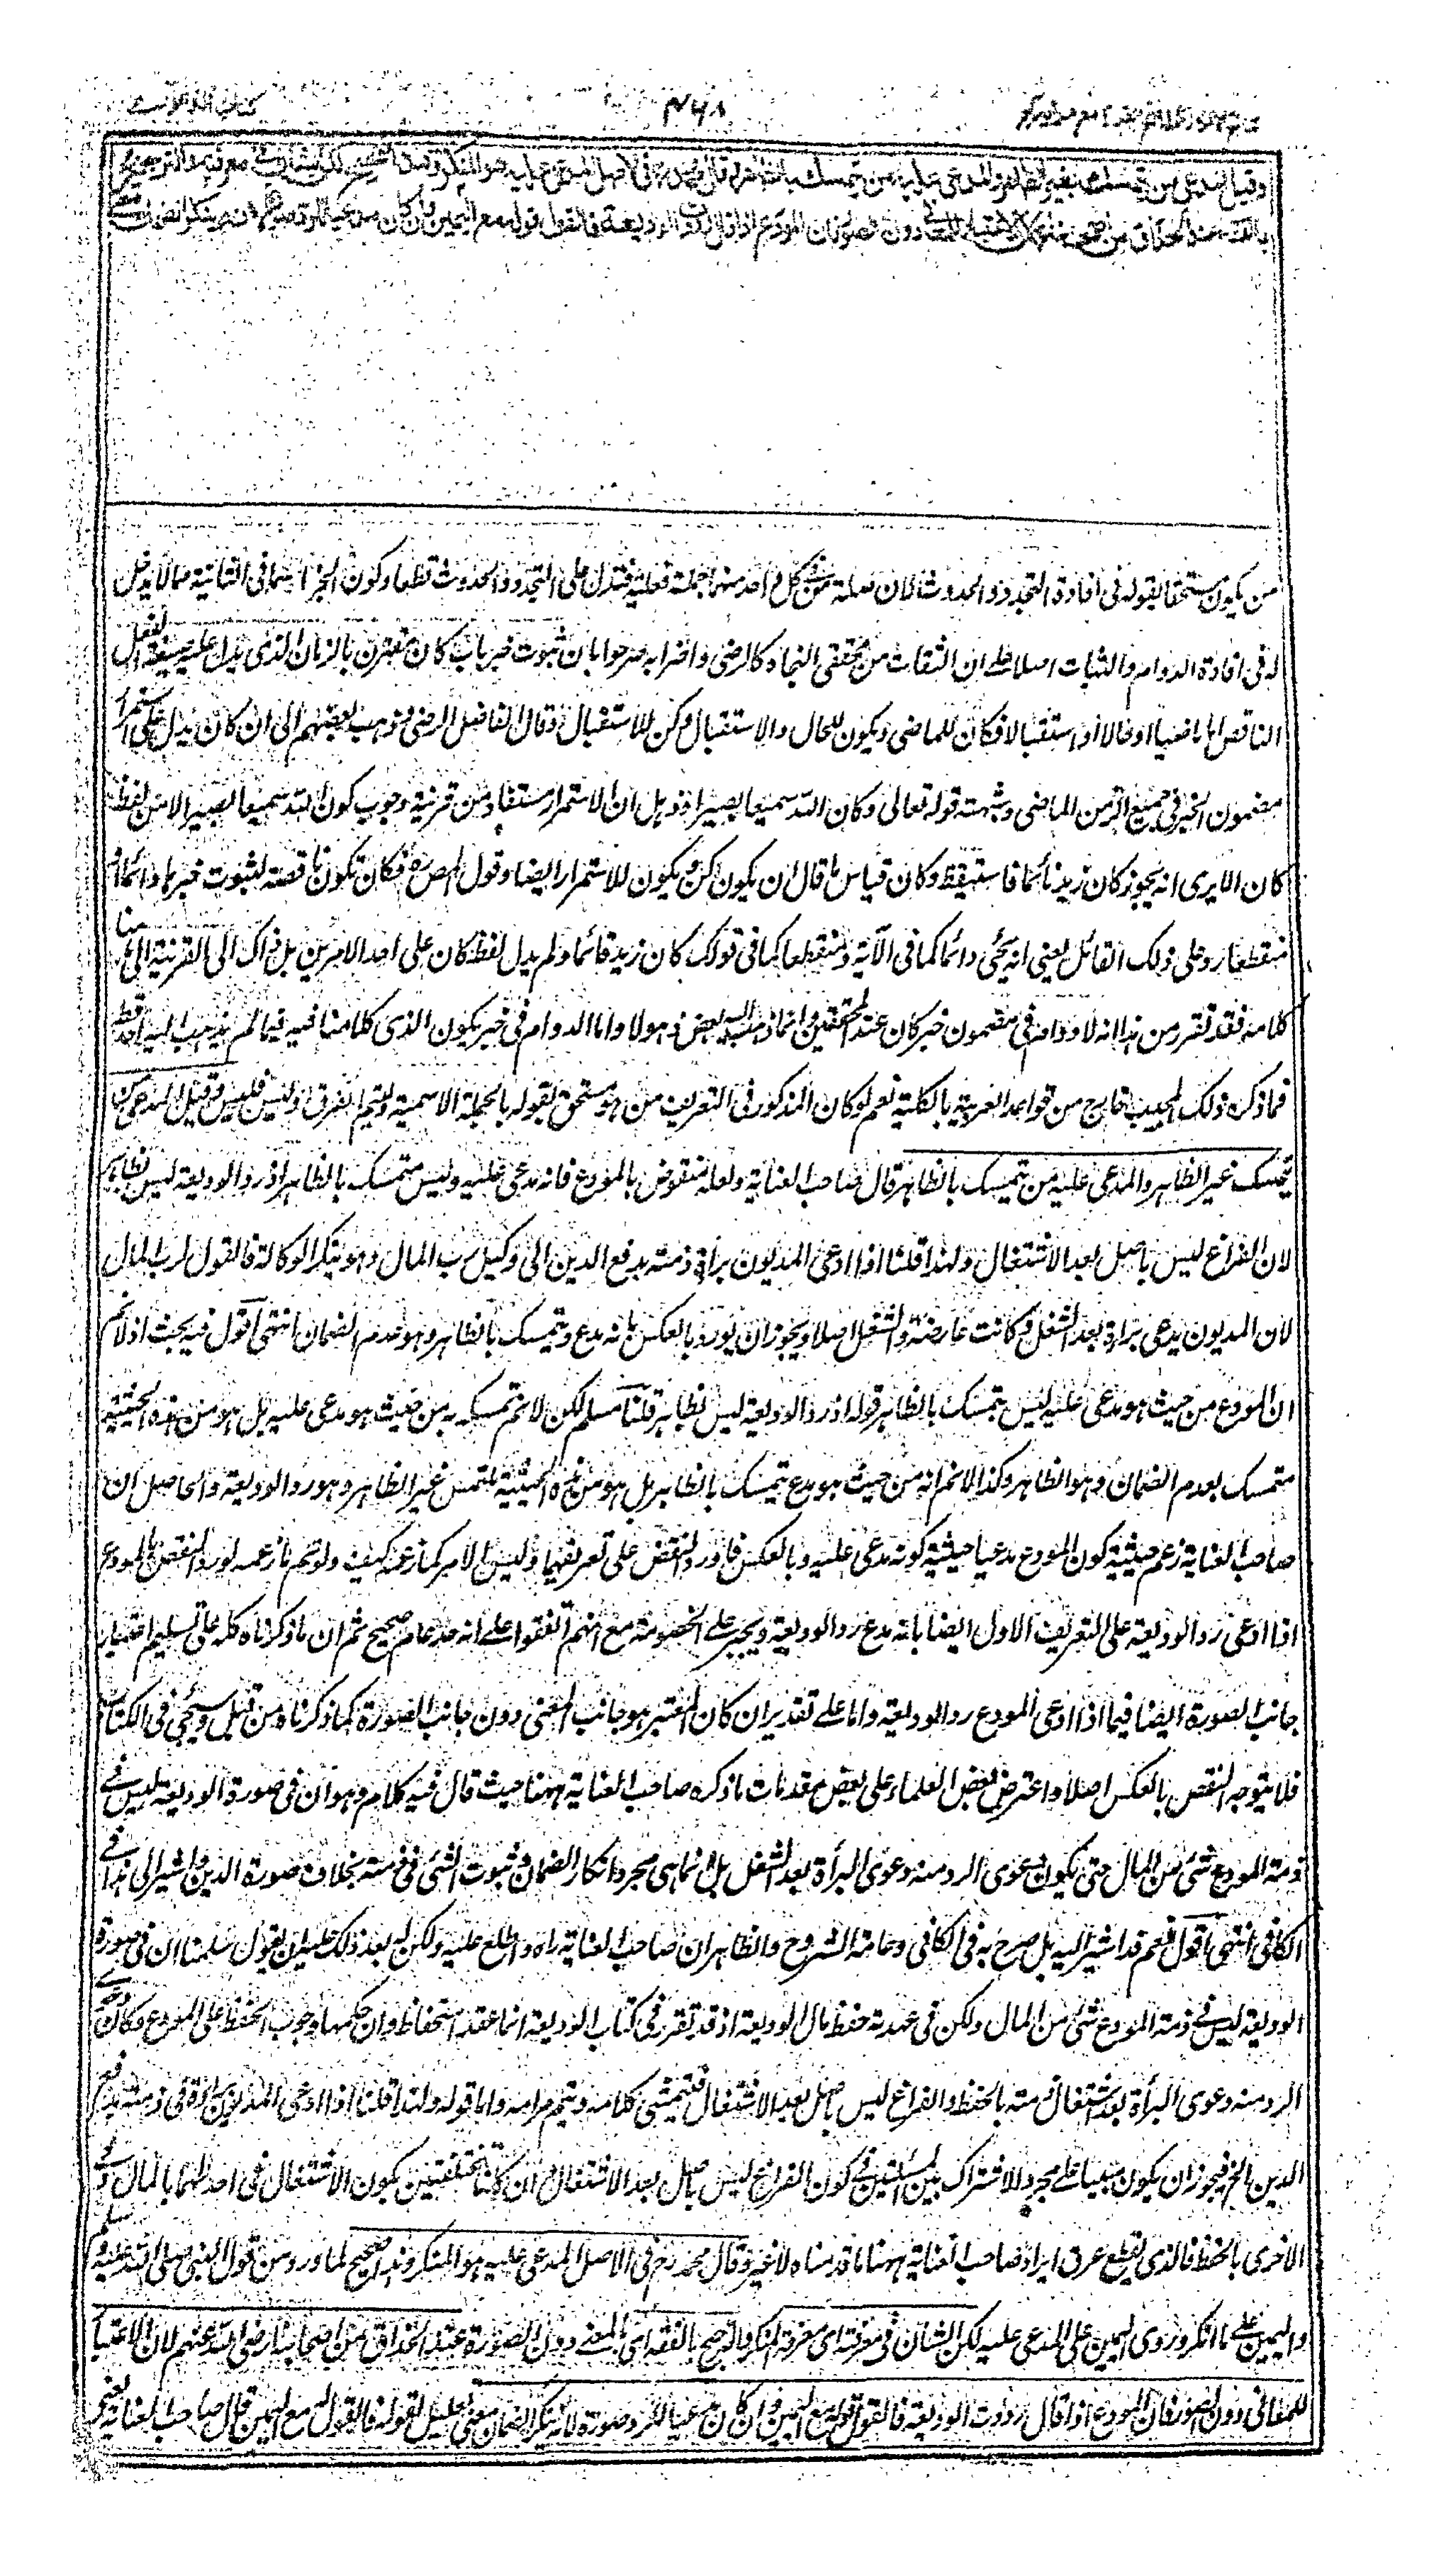 كتاب الدعوى
٤٦٨
وقيل المدعي من يتمسك بغير الظاهر والمدعى عليه من يتمسك بالظاهر وقال محمد رح في الاصل المدعى عليه هو المنكر وهذا صحيح لكن الشان في معرفته والترجيح
بالفقه عند الحذاق من اصحابنا لان الاعتبار للمعاني دون الصور فان المودع اذا قال رددت الوديعة فالقول قوله مع اليمين وان كان مدعيا للرد صورة لانه ينكر الضمان
من يكون مستحقا بقوله في افادة التجدد والحدوث لان صلة من في كل واحد منهما جملة فعلية فتدل على التجدد والحدوث قطعا وكون الجزء اسما في الثانية مما لا يدخل
له في افادة الدوام والثبات اصلا على ان الثقات من محققي النحاة كالرضي واضرابه صرحوا بان ثبوت خبر باب كان مقترن بالزمان الذي يدل عليه صيغة الفعل
الناقص اما ماضيا او حالا او استقبالا فكان للماضي ويكون للحال والاستقبال وكن للاستقبال وقال الفاضل الرضي وذهب بعضهم الى ان كان يدل على استمرار
مضمون الخبر في جميع الزمن الماضي وشبهته قوله تعالى وكان الله سميعا بصيرا وذهل ان الاستمرار مستفاد من قرينة وجوب كون الله سميعا بصيرا لا من لفظ
كان الا يرى انه يجوز كان زيد نائما فاستيقظ وكان قياس ما قال ان يكون كن ويكون للاستمرار ايضا وقول المصرح فكان تكون ناقصة لثبوت خبرها دائما او
منقطعا رد على ذلك القائل يعني انه يجئ دائما كما في الآية ومنقطعا كما في قولك كان زيد قائما ولم يدل لفظ كان على احد الامرين بل ذاك الى القرينة الى هنا
كلامه فقد تقرر من هذا انه لا دوام في مضمون خبر كان عند المحققين وانما ذهب اليه بعض ذهولا واما الدوام في خبر يكون الذي كلامنا فيه فيما لم يذهب اليه احد قط
فما ذكره ذلك المجيب خارج من قواعد العربية بالكلية نعم لو كان المذكور في التعريف من هو مستحق بقوله بالجملة الاسمية وليتم الفرق اذ ليس فليس وقيل المدعي من
يتمسك غير الظاهر والمدعى عليه من يتمسك بالظاهر قال صاحب العناية ولعله منقوض بالمودع فانه مدعى عليه وليس متمسك بالظاهر اذ رد الوديعة ليس بظاهر
لان الفراغ ليس باصل بعد الاشتغال ولهذا قلنا اذا ادعى المديون براءة ذمته بدفع الدين الى وكيل رب المال وهو ينكر الوكالة فالقول لرب المال
لان المديون يدعي براءة بعد الشغل فكانت عارضة والشغل اصلا ويجوز ان يورد بالعكس بانه مدع ويتمسك بالظاهر وهو عدم الضمان انتهى اقول فيه بحث اذ لا نم
ان المودع من حيث هو مدعى عليه ليس بتمسك بالظاهر قوله اذ رد الوديعة ليس بظاهر قلنا مسلم لكن لا نم تمسكه به من حيث هو مدعى عليه بل هو من هذه الحيثية
متمسك بعدم الضمان وهو الظاهر وكذا لا نم انه من حيث هو مدع يتمسك بالظاهر بل هو من هذه الحيثية ملتمس غير الظاهر وهو رد الوديعة والحاصل ان
صاحب العناية زعم حيثية كون المودع مدعيا حيثية كونه مدعى عليه وبالعكس فاورد النقض على تعريفهما وليس الامر كما زعمه كيف ولو تم ما زعمه لورد النقض بالمودع
اذا ادعى رد الوديعة على التعريف الاول ايضا بانه مدع رد الوديعة ويجبر على الخصومة مع انهم اتفقوا على انه حد عام صحيح ثم ان ما ذكرناه كله على تسليم اعتبار
جانب الصورة ايضا فيما اذا ادعى المودع رد الوديعة واما على تقدير ان كان المعتبر هو جانب المعنى دون جانب الصورة كما ذكرناه من قبل وسيجئ في الكتاب
فلا يتوجه النقض بالعكس اصلا واعترض بعض العلماء على بعض مقدمات ما ذكره صاحب العناية ههنا حيث قال فيه كلام وهو ان في صورة الوديعة ليس في
ذمة المودع شئ من المال حتى يكون دعوى الرد منه دعوى البرأة بعد الشغل بل انما هي مجرد انكار الضمان وثبوت الشئ في ذمته بخلاف صورة الدين واشير الى هذا في
الكافي انتهى اقول نعم قد اشير اليه بل صرح به في الكافي وعامة الشروح والظاهر ان صاحب العناية راه واطلع عليه ولكن له بعد ذلك عليه ان يقول سلمنا ان في صورة
الوديعة ليس في ذمة المودع شئ من المال ولكن في عهدته حفظ مال الوديعة اذ قد تقرر في كتاب الوديعة انها عقد استحفاظ وان حكمها وجوب الحفظ على المودع وكان دعوى
الرد منه دعوى البرأة بعد اشتغال ذمته بالحفظ والفراغ ليس باصل بعد الاشتغال فيتمشى كلامه ويتم مرامه واما قوله ولهذا قلنا اذا ادعى المديون براءة ذمته بدفع
الدين الخ فيجوز ان يكون مبنيا على مجرد الاشتراك بين المسئلتين في كون الفراغ ليس باصل بعد الاشتغال وان كانتا مختلفتين بكون الاشتغال في احداهما بالمال وفي
الاخرى بالحفظ فالذي يقطع عرق ايراد صاحب العناية ههنا ما قدمناه لا غير وقال محمد رح في الاصل المدعى عليه هو المنكر وهذا صحيح لما ورد من قول النبي صلى الله عليه وسلم
واليمين على ما انكر وروى اليمين على المدعى عليه لكن الشان في معرفته اى معرفة المنكر والترجيح بالفقه اى بالمعنى دون الصورة عند الحذاق من اصحابنا رضى الله عنهم لان الاعتبار
للمعاني دون الصور فان المودع اذا قال رددت الوديعة فالقول قوله مع اليمين وان كان مدعيا للرد صورة لانه ينكر الضمان معنى تعليل لقوله فالقول له مع اليمين قال صاحب العناية يعني